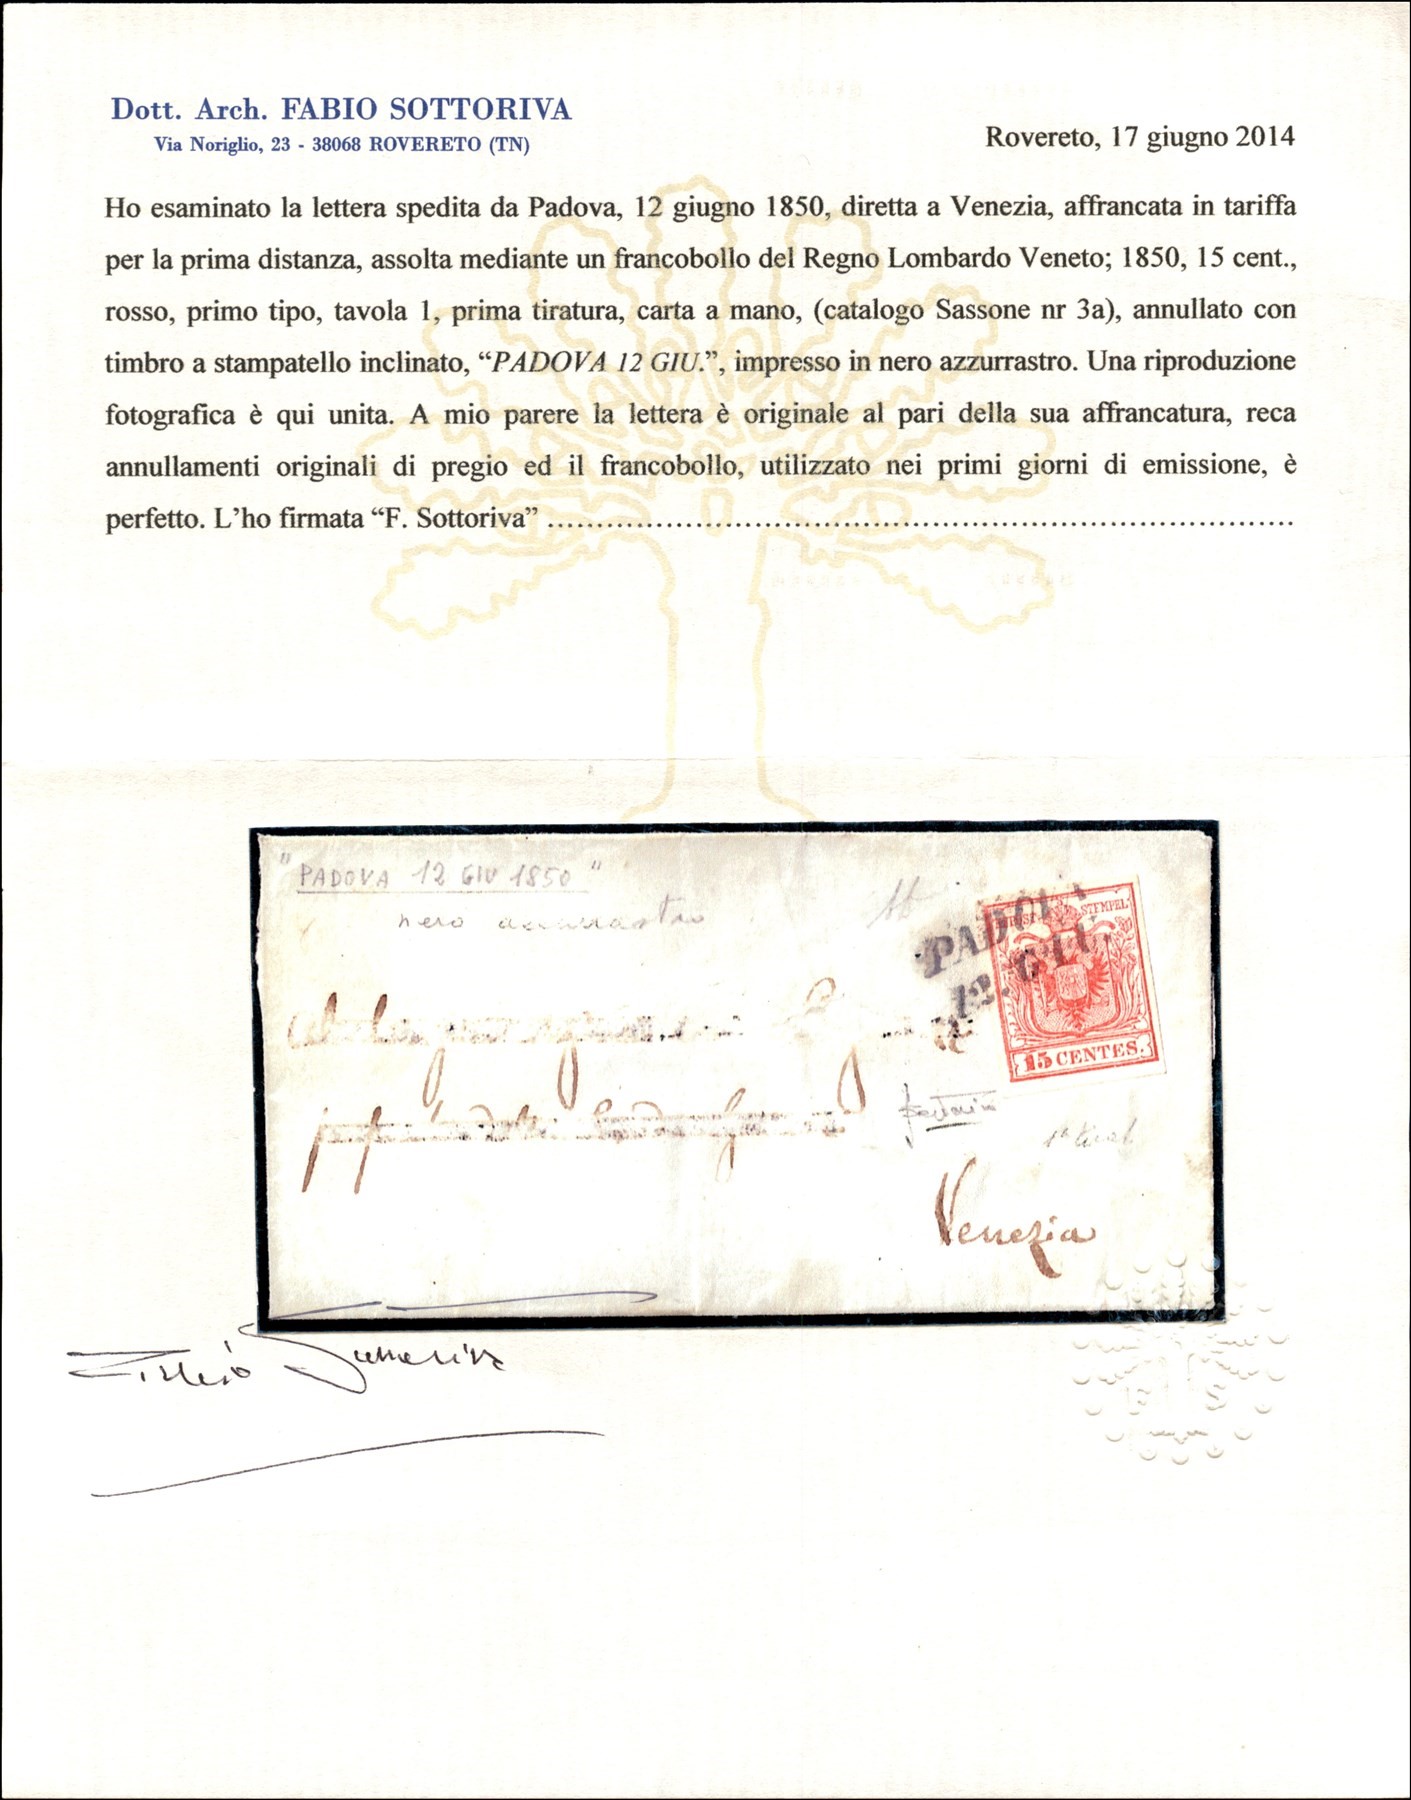 Dott. Arch. FABIO SOTTORIVA
Via Noriglio, 23 - 38068 ROVERETO (TN)
Rovereto, 17 giugno 2014
Ho esaminato la lettera spedita da Padova, 12 giugno 1850, diretta a Venezia, affrancata in tariffa
per la prima distanza, assolta mediante un francobollo del Regno Lombardo Veneto; 1850, 15 cent.,
rosso, primo tipo, tavola 1, prima tiratura, carta a mano, (catalogo Sassone nr 3a), annullato con
timbro a stampatello inclinato, “PADOVA 12 GIU.”, impresso in nero azzurrastro. Una riproduzione
fotografica è qui unita. A mio parere la lettera è originale al pari della sua affrancatura, reca
annullamenti originali di pregio ed il francobollo, utilizzato nei primi giorni di emissione, è
perfetto. L’ho firmata “F. Sottoriva” ............................................................................
"PADOVA 12 GIU 1850"
nero azzurrastro
PADOVA
12. GIU.
STEMPEL
15 CENTES.
Venezia
F S